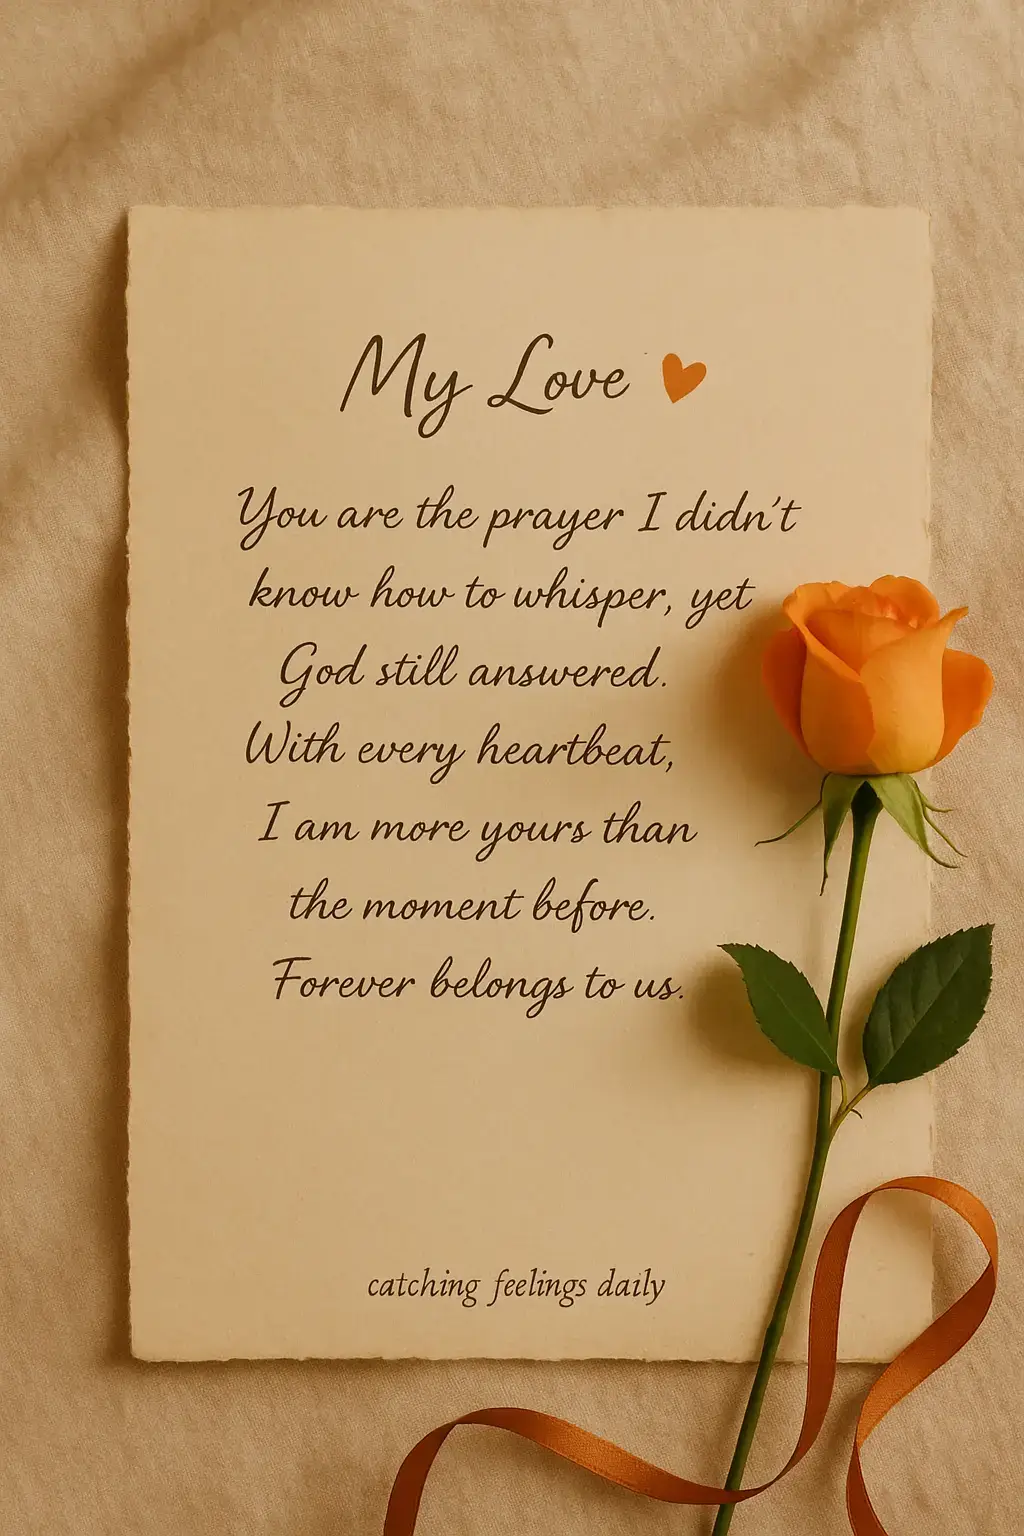 My Love 🧡
You are the prayer I didn't
know how to whisper, yet
God still answered.
With every heartbeat,
I am more yours than
the moment before.
Forever belongs to us.
catching feelings daily